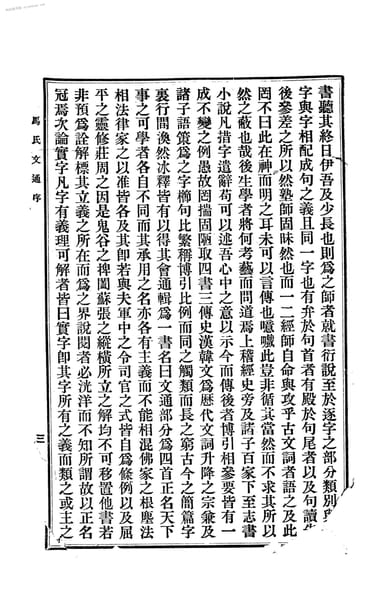 書聽其終日伊吾及少長也則爲之師者就書衍說至於逐字之部分類別與
字與字相配成句之義且同一字也有弁於句首者有殿於句尾者以及句讀
後參差之所以然塾師固昧然也而一二經師自命與攻乎古文詞者語之及此
罔不曰此在神而明之耳未可以言傳也噫嘻此豈非循其當然而不求其所以
然之蔽也哉後生學者將何考藝而問道焉上稽經史旁及諸子百家下至志書
小說凡措字遣辭苟可以述吾心中之意以示今而傳後者博引相參要皆有一
成不變之例愚故罔揣固陋取四書三傳史漢韓文爲歷代文詞升降之宗兼及
諸子語策爲之字櫛句比繁稱博引比例而同之觸類而長之窮古今之簡篇字
裏行間渙然冰釋皆有以得其會通輯爲一書名曰文通部分爲四首正名天下
事之可學者各自不同而其承用之名亦各有主義而不能相混佛家之根塵法
相法律家之以准皆各及其卽若與夫軍中之令司官之式皆自爲條例以及屈
平之靈修莊周之因是鬼谷之捭闔蘇張之縱橫所立之解均不可移置他書若
非預爲詮解標其立義之所在而爲之界說閱者必洸洋而不知所謂故以正名
冠焉次論實字凡字有義理可解者皆曰實字卽其字所有之義而類之或主之
馬氏文通序
三